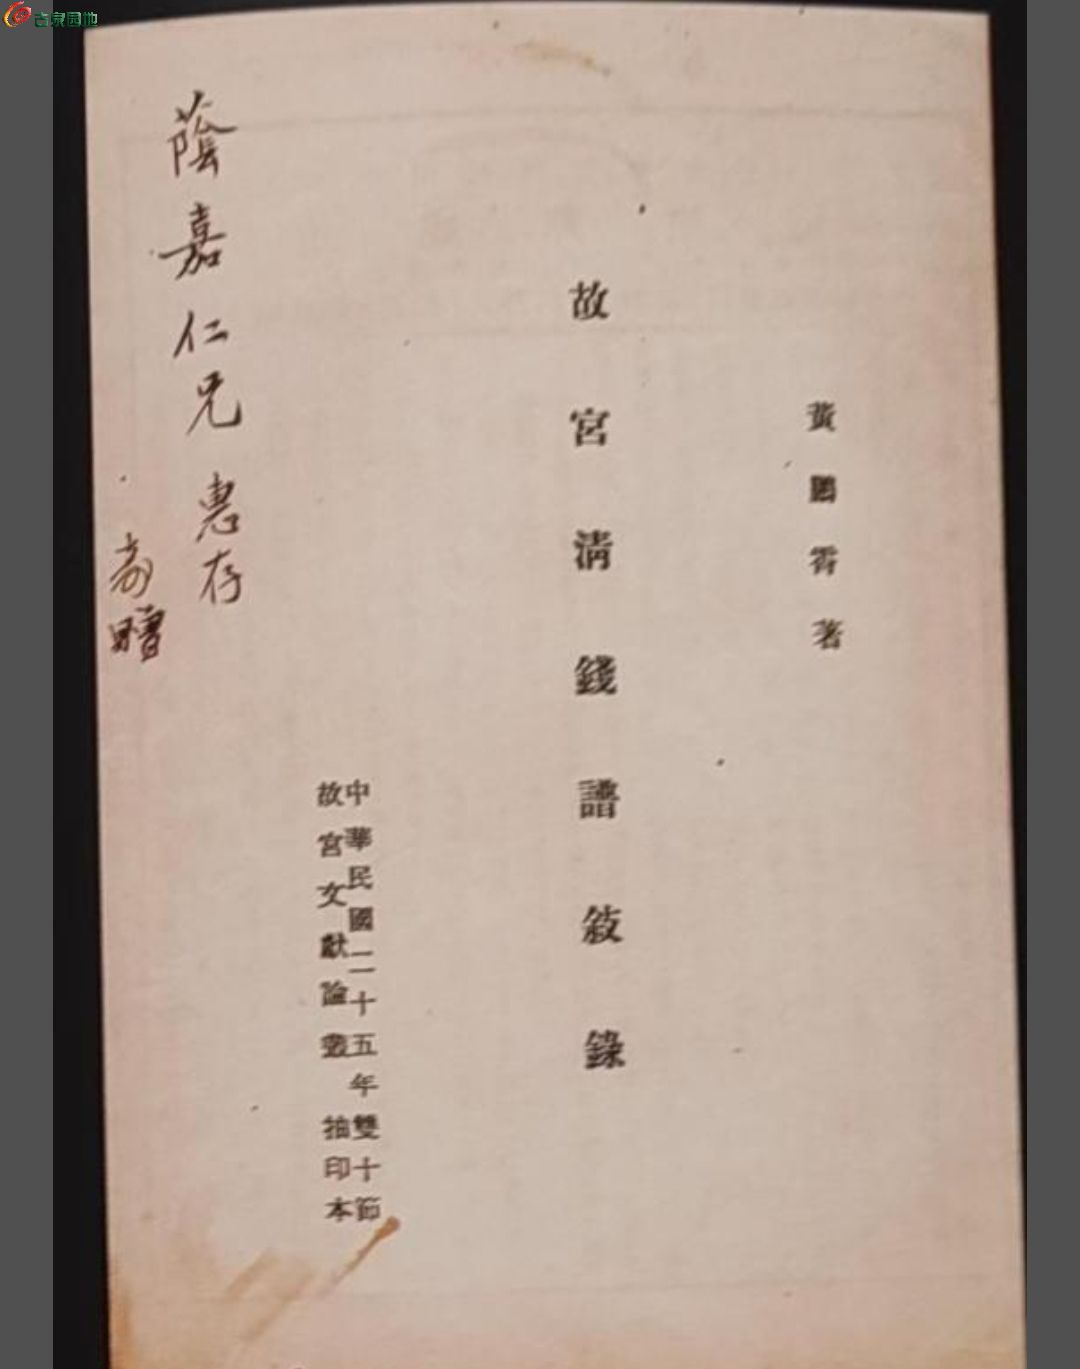 古泉园地
黃鵬霄著
故宮清錢譜敘錄
中華民國二十五年雙十節
故宮文獻論叢抽印本
蔭嘉仁兄惠存
贈